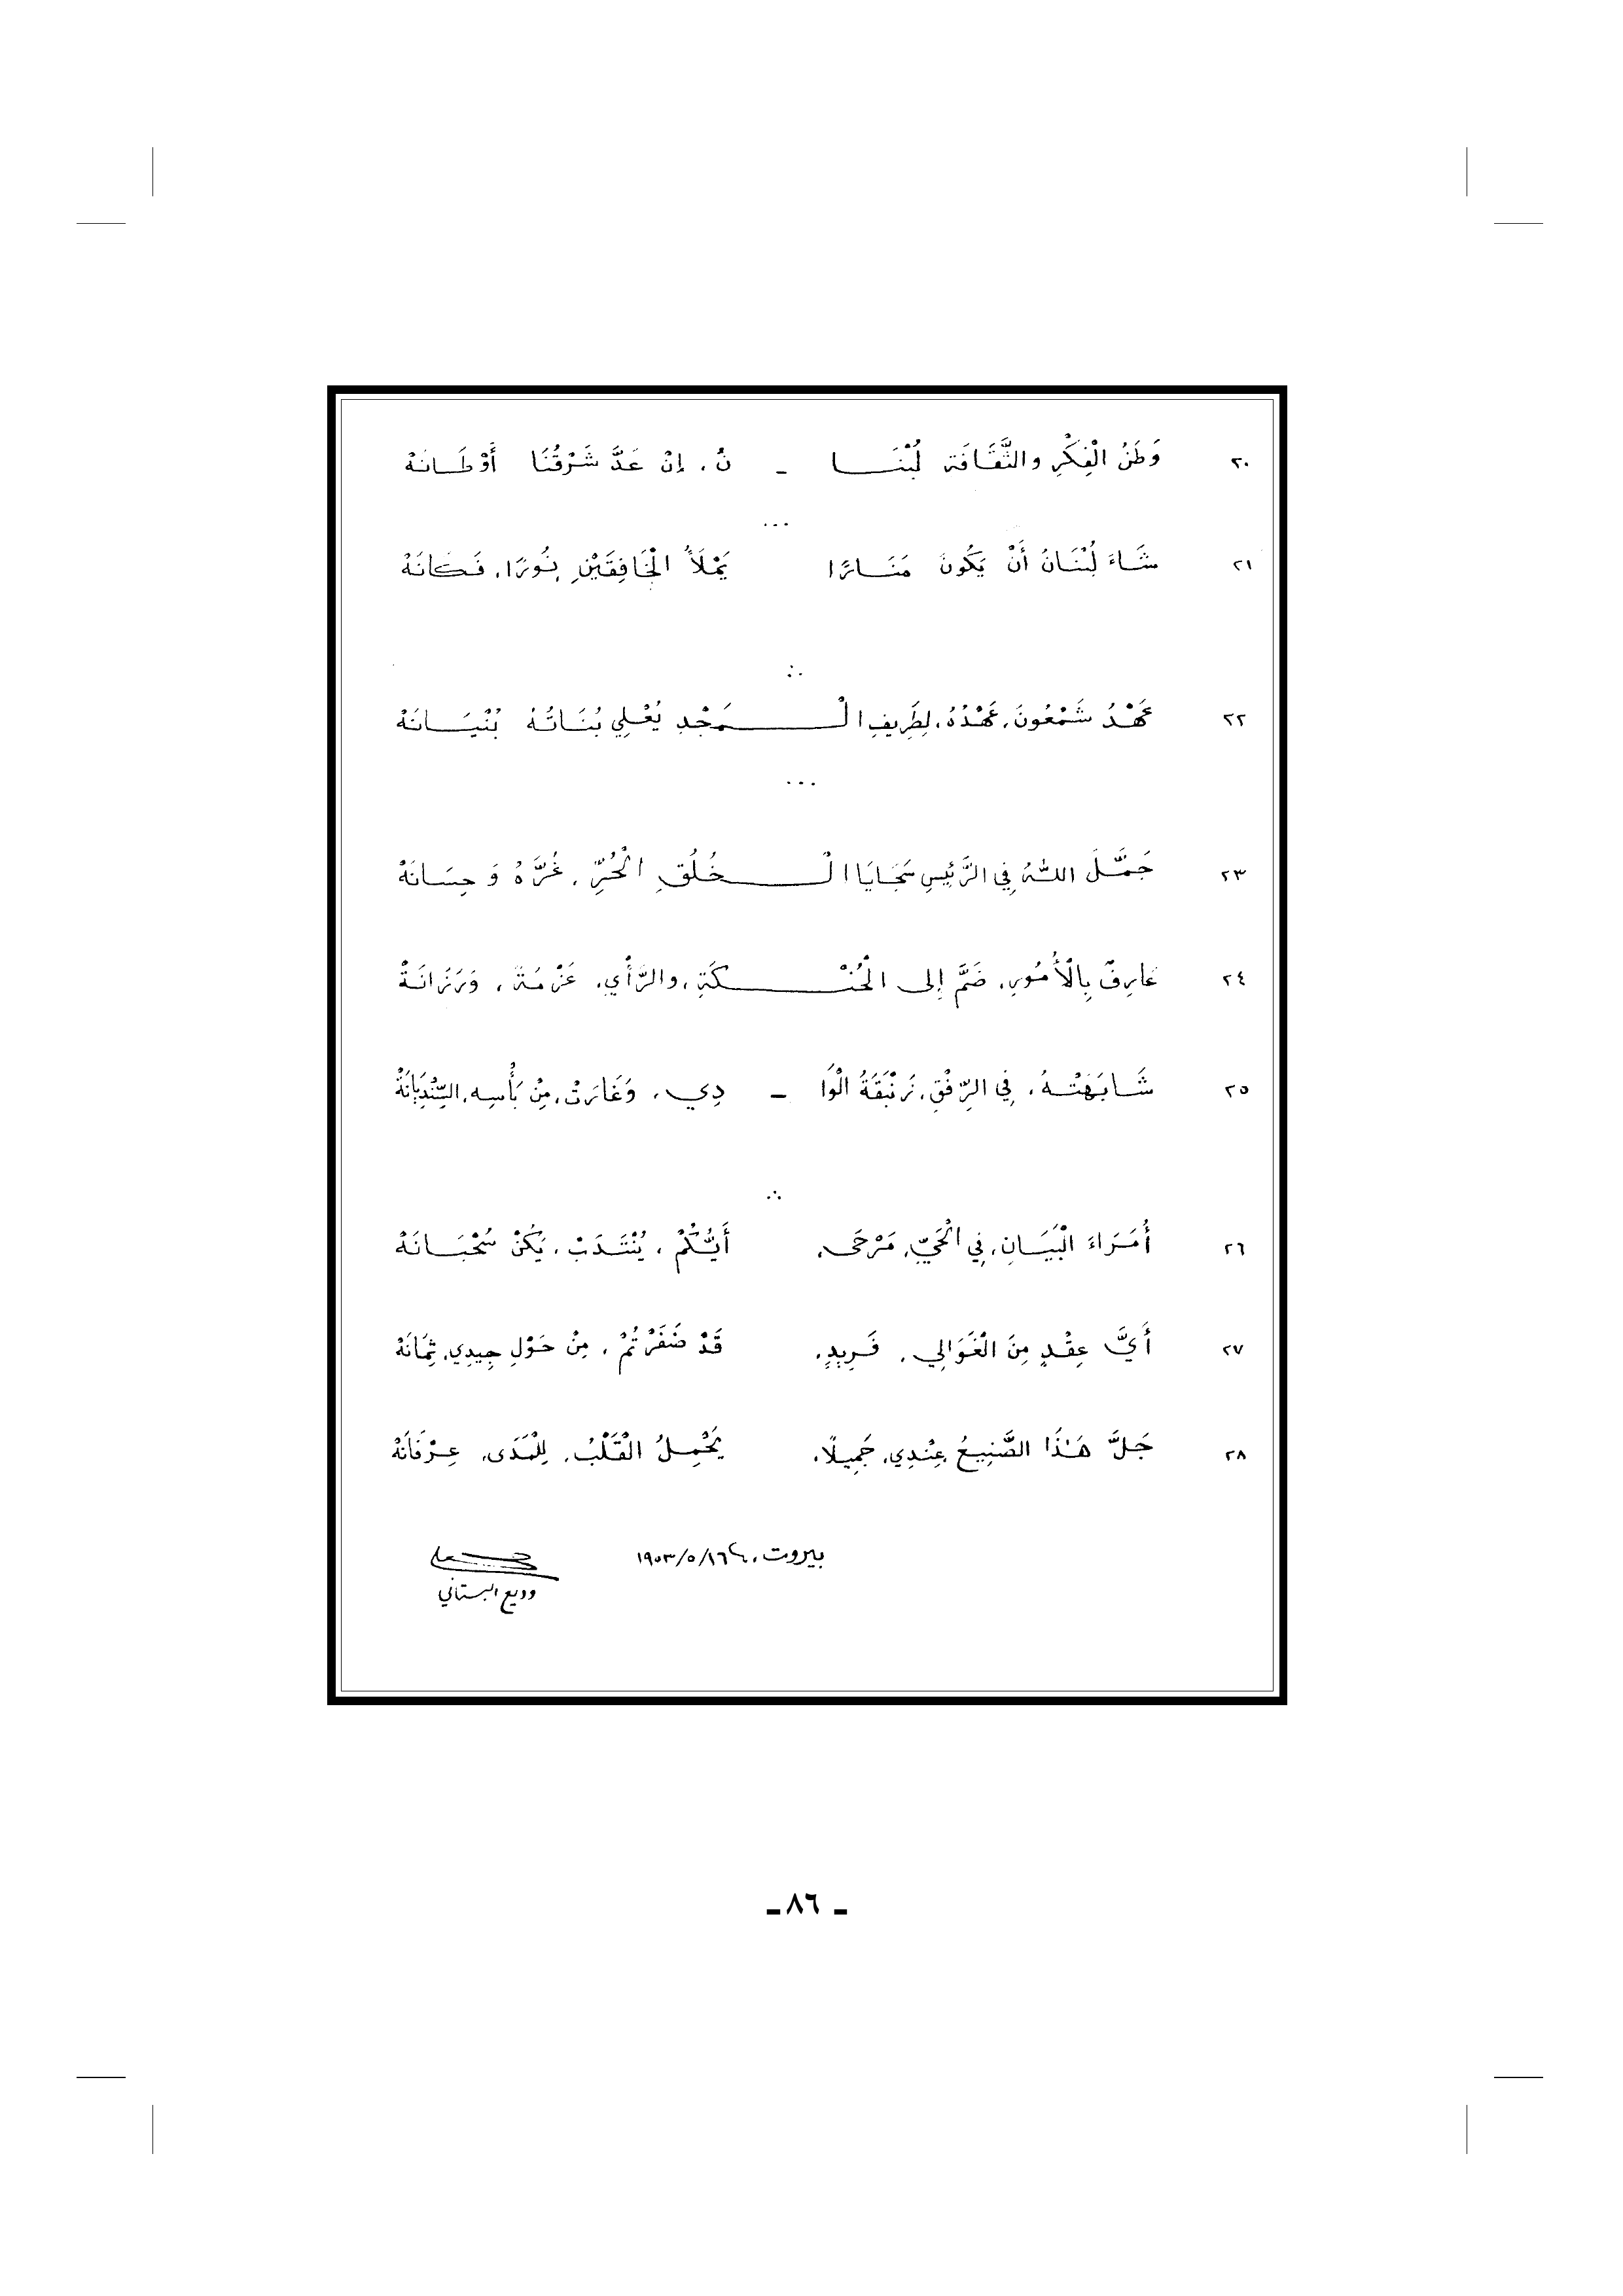 ٢٠ وَطَنُ الْفِكْرِ والثَّقَافَة لُبْنَـــا - نُ، إِنْ عَدَّ شَرْقُنَا أَوْطَـانَهْ
...
٢١ شَـاءَ لُبْنَـانُ أَنْ يَكُونَ مَنَـارًا يَمْلَأُ الْخَافِقَيْنِ نُورًا، فَـكَانَهْ
∴
٢٢ عَهْدُ شَمْعُونَ، عَهْدُهُ، لِطَرِيفِ الْـــمَجْدِ يُعْـلِي بُنَـاتُهُ بُنْيَـانَهْ
...
٢٣ جَمَّـلَ اللهُ فِي الرَّئِيسِ سَجَـايَا الْـــخُلُقِ الْحُرِّ، غُرَّهْ وَ حِسَـانَهْ
٢٤ عَارِفٌ بِالْأُمُورِ، ضَمَّ إِلى الْحُنْـــكَةِ، والرَّأْيِ، عَزْمَةً، وَرَزَانَـةْ
٢٥ شَـابَهَتْـهُ، فِي الرِّفْقِ، زَنْبَقَةُ الْوَا - دِي، وَغَارَتْ، مِنْ بَأْسِه، السِّنْدِيَانَةْ
∴
٢٦ أُمَـرَاءَ الْبَيَـانِ، فِي الْحَيِّ، مَرْحَى، أَيُّـكُمْ، يُنْتَـدَبْ، يَكُنْ سُحْبَـانَهْ
٢٧ أَيَّ عِقْـدٍ مِنَ الْغَوَالِي، فَـرِيدٍ، قَدْ ضَفَرْتُمْ، مِنْ حَوْلِ جِيدِي، ثِمَانَهْ
٢٨ جَـلَّ هَـٰذَا الصَّنِيعُ عِنْدِي، جَمِيلًا، يَحْمِـلُ الْقَلْبُ، لِلْمَدَى، عِـرْفَانَهْ
بيروت، ١٩٥٣/٥/١٦
وديع البستاني
- ٨٦ -